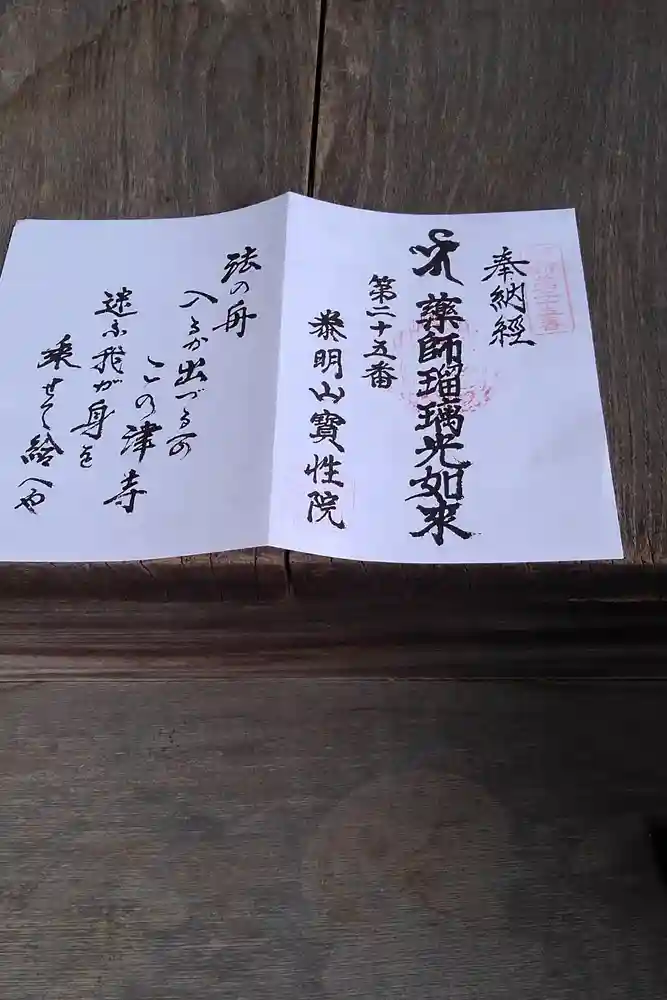 奉納經
薬師瑠璃光如來
第二十五番
泰明山寳性院
法の舟
入るか出づるの
この津寺
迷ふ我が身を
乗せて給へや